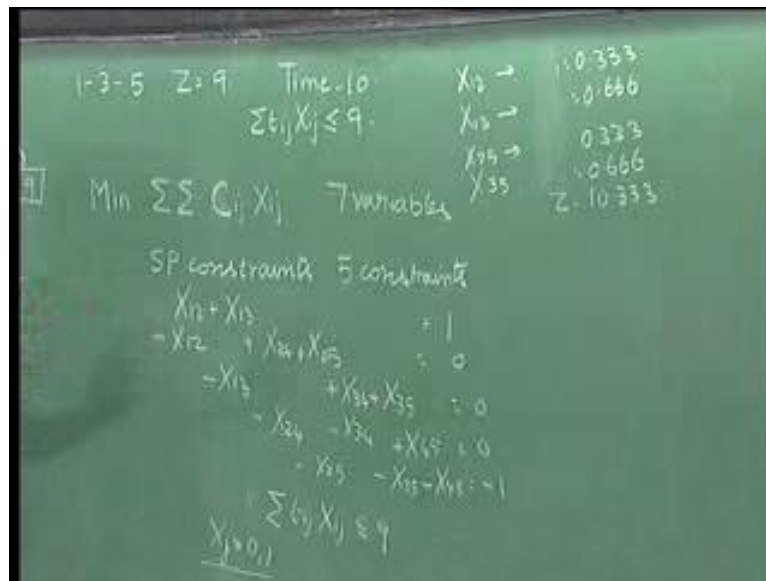 1-3-5 Z=9 Time-10
Σtij Xij ≤ 9.
X12 → =0.333
X13 → =0.666
X25 → 0.333
X35 =0.666
Z=10.333
Min ΣΣ Cij Xij 7 variables
SP constraints 5 constraints
X12 + X13 = 1
-X12 + X24 + X25 = 0
-X13 + X34 + X35 = 0
-X24 -X34 + X45 = 0
-X25 -X35 -X45 = -1
Σtij Xij ≤ 9
Xij = 0,1